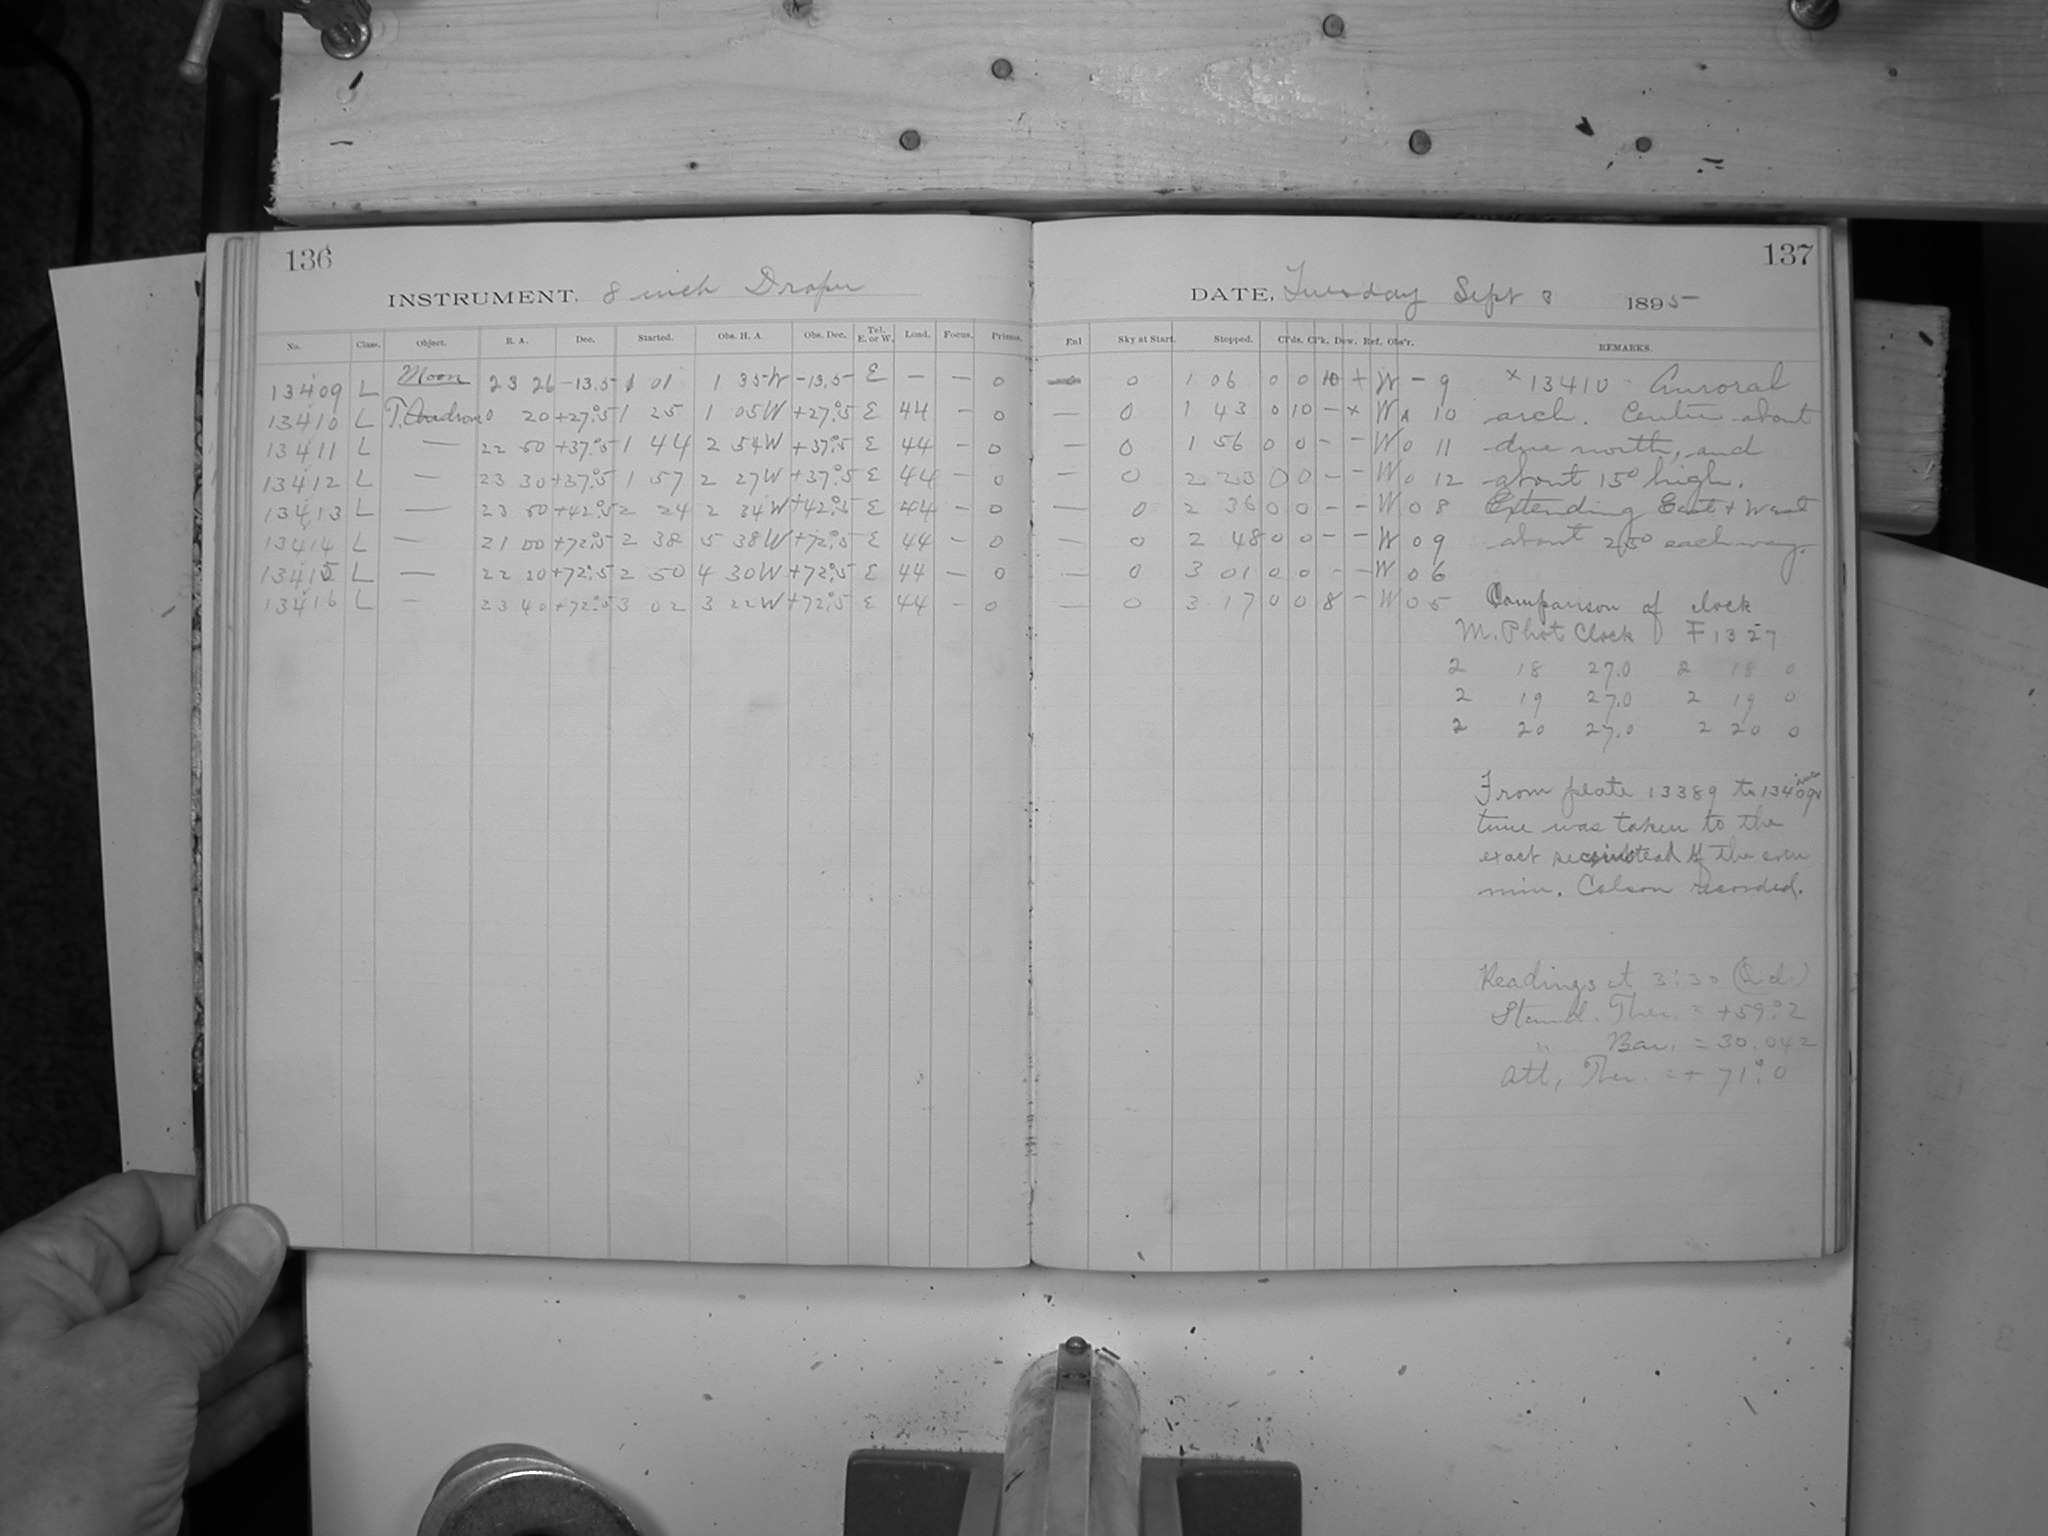 136
INSTRUMENT. 8 inch Draper
No. Class. Object. R. A. Dec. Started. Obs. H. A. Obs. Dec. Tel. E. or W. Load. Focus. Prisms.
13409 L Moon 23 26 -13.5 1 01 1 35W -13.5 E — — 0
13410 L T. Androm 0 20 +27°.5 1 25 1 05W +27°.5 E 44 — 0
13411 L — 22 50 +37°.5 1 44 2 54W +37°.5 E 44 — 0
13412 L — 23 30 +37°.5 1 57 2 27W +37°.5 E 44 — 0
13413 L — 23 50 +42°.5 2 24 2 34W +42°.5 E 44 — 0
13414 L — 21 00 +72°.5 2 38 5 38W +72°.5 E 44 — 0
13415 L — 22 20 +72°.5 2 50 4 30W +72°.5 E 44 — 0
13416 L — 23 40 +72°.5 3 02 3 22W +72°.5 E 44 — 0
137
DATE, Tuesday Sept 3 1895
Enl Sky at Start. Stopped. Cl'ds. Cl'k. Dew. Ref. Obs'r. REMARKS.
0 1 06 0 0 10 + W - 9 × 13410 Auroral
— 0 1 43 0 10 - × W A 10 arch. Centre about
— 0 1 56 0 0 - - W 0 11 due north, and
— 0 2 23 0 0 - - W 0 12 about 15° high.
— 0 2 36 0 0 - - W 0 8 Extending East + West
— 0 2 48 0 0 - - W 0 9 about 25° each way.
— 0 3 01 0 0 - - W 0 6
— 0 3 17 0 0 8 - W 0 5 Comparison of clock
M. Phot Clock F 1327
2 18 27.0 2 18 0
2 19 27.0 2 19 0
2 20 27.0 2 20 0
From plate 13389 to 13409
time was taken to the
exact sec. instead of the even
min. Colson recorded.
Readings at 3:30
Stand. Ther. = +59°.2
" Bar. = 30.042
Att, Ther. = + 71°.0